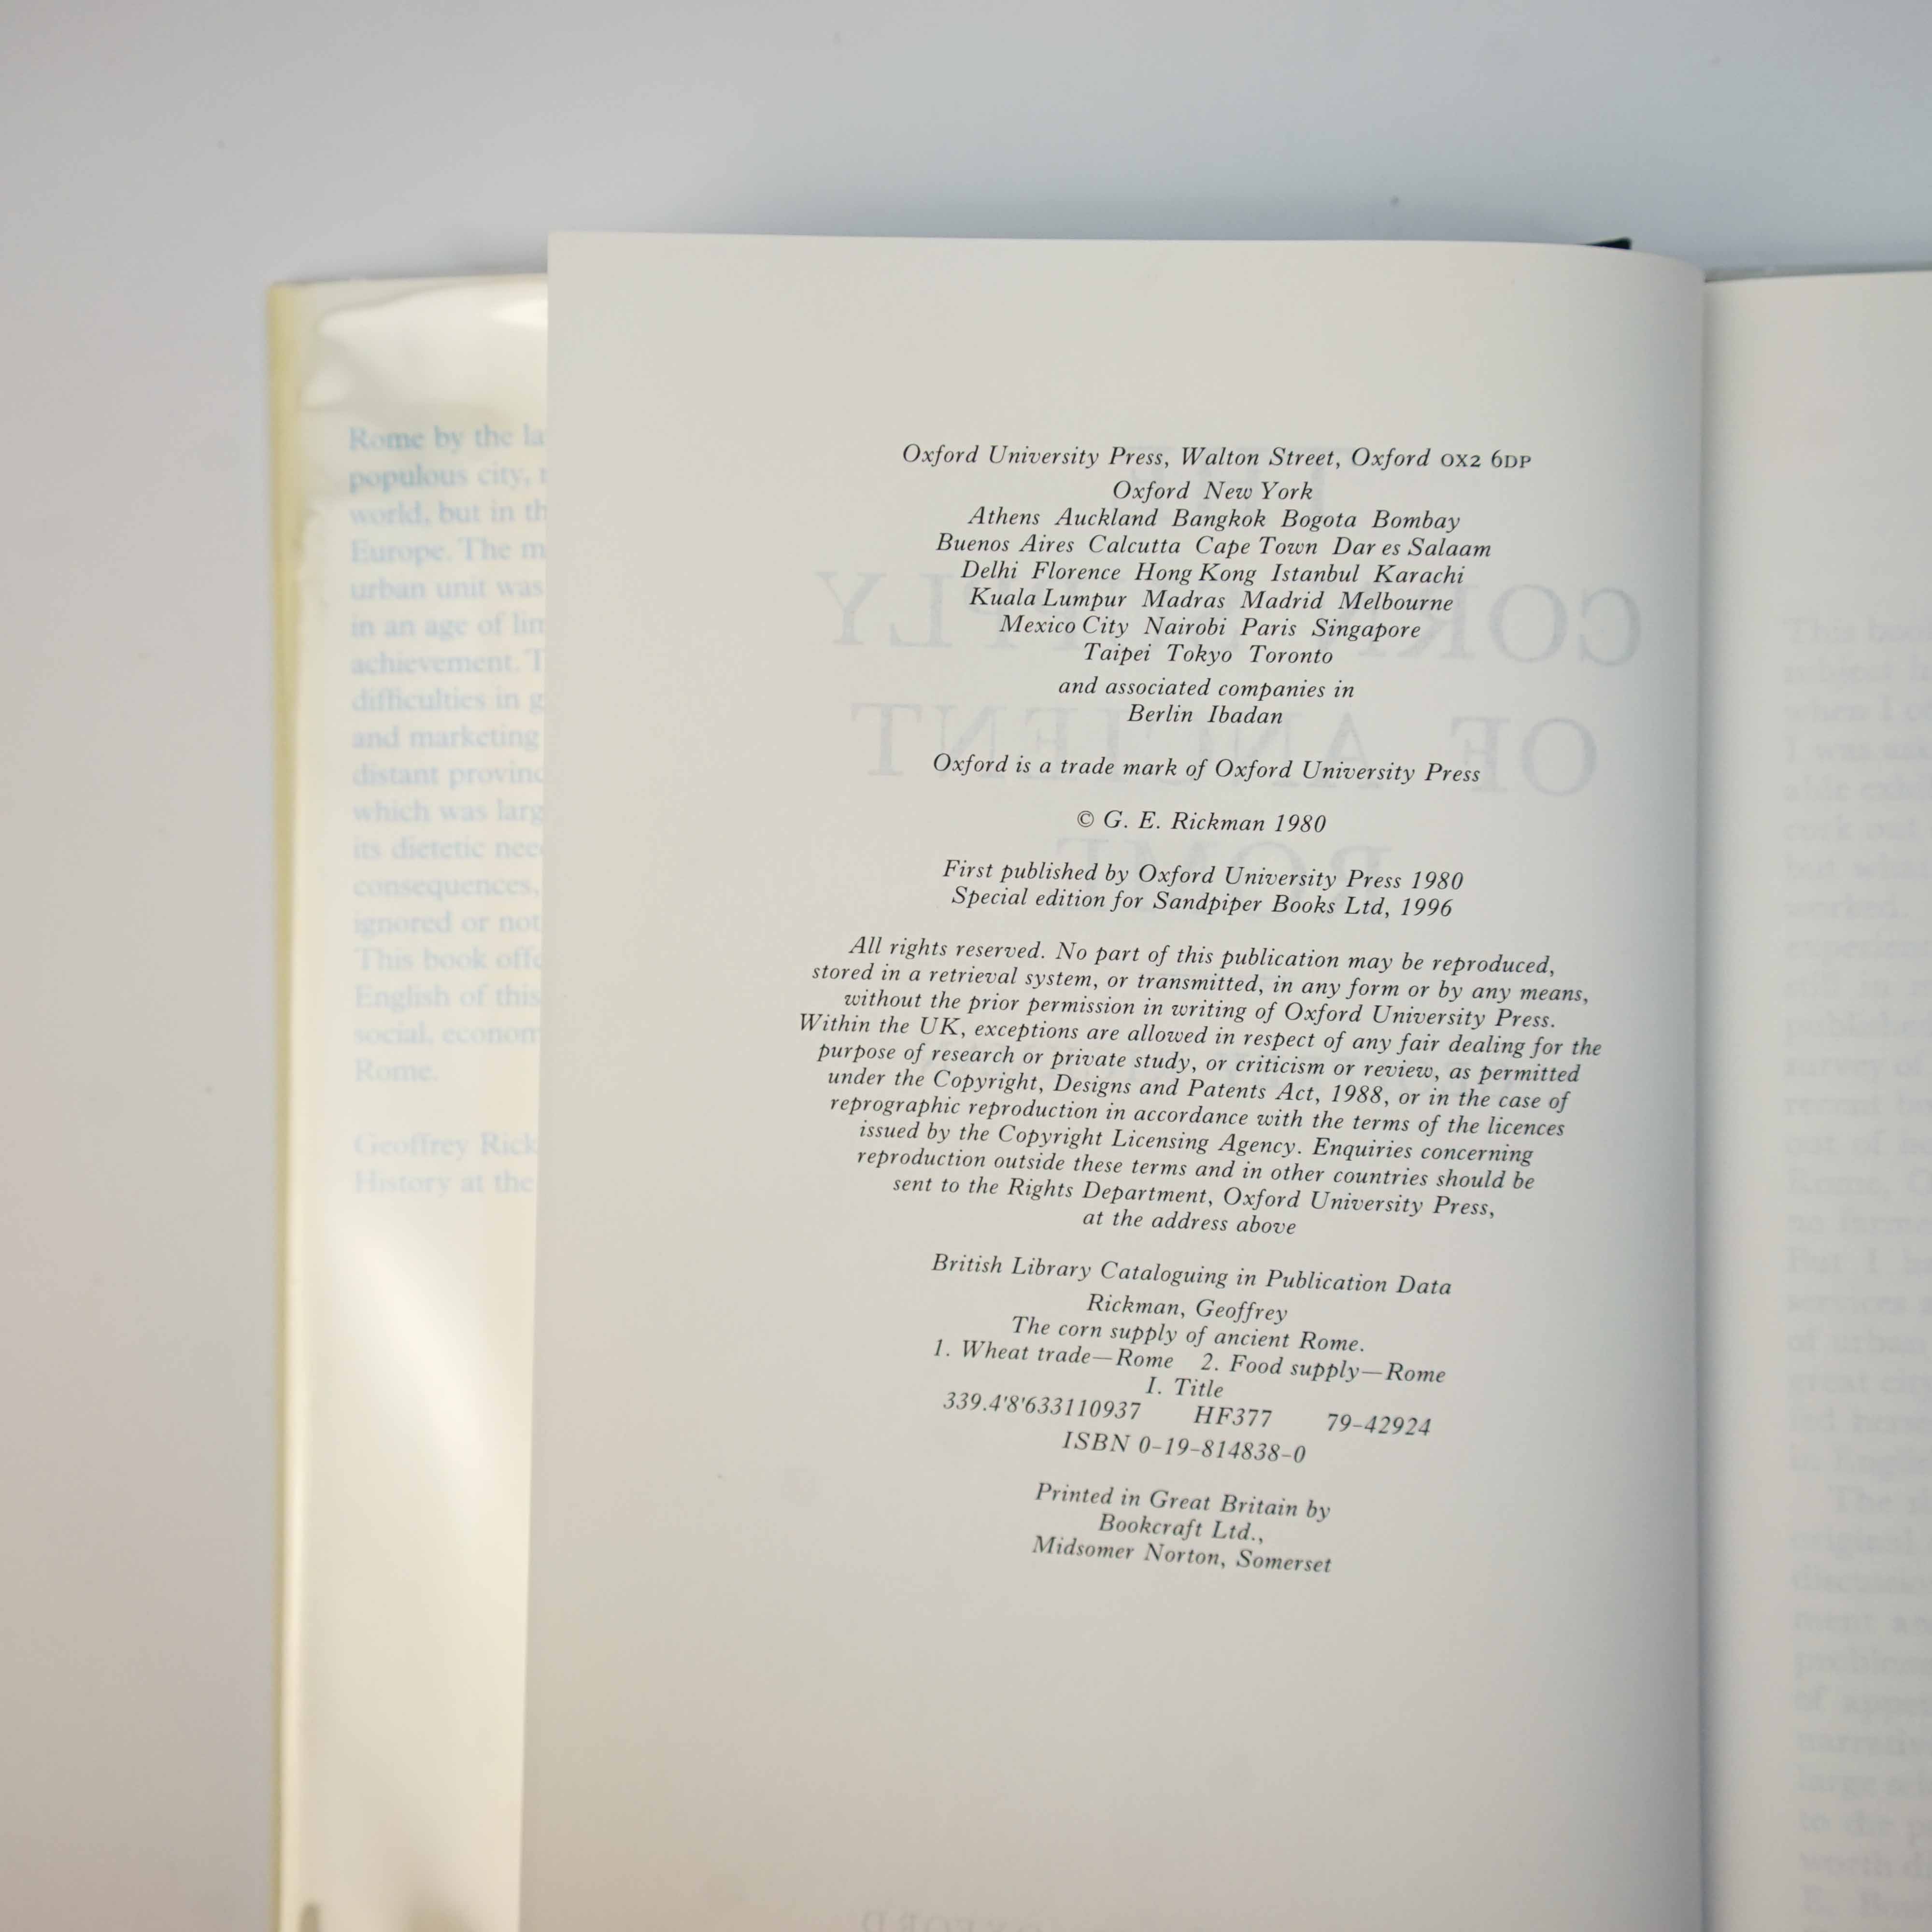 Rome by the la
populous city,
world, but in th
Europe. The m
urban unit was
in an age of lim
achievement. T
difficulties in g
and marketing
distant provinc
which was larg
its dietetic nee
consequences,
ignored or not
This book offe
English of this
social, econom
Rome.
Geoffrey Rick
History at the
Oxford University Press, Walton Street, Oxford OX2 6DP
Oxford New York
Athens Auckland Bangkok Bogota Bombay
Buenos Aires Calcutta Cape Town Dar es Salaam
Delhi Florence Hong Kong Istanbul Karachi
Kuala Lumpur Madras Madrid Melbourne
Mexico City Nairobi Paris Singapore
Taipei Tokyo Toronto
and associated companies in
Berlin Ibadan
Oxford is a trade mark of Oxford University Press
© G. E. Rickman 1980
First published by Oxford University Press 1980
Special edition for Sandpiper Books Ltd, 1996
All rights reserved. No part of this publication may be reproduced,
stored in a retrieval system, or transmitted, in any form or by any means,
without the prior permission in writing of Oxford University Press.
Within the UK, exceptions are allowed in respect of any fair dealing for the
purpose of research or private study, or criticism or review, as permitted
under the Copyright, Designs and Patents Act, 1988, or in the case of
reprographic reproduction in accordance with the terms of the licences
issued by the Copyright Licensing Agency. Enquiries concerning
reproduction outside these terms and in other countries should be
sent to the Rights Department, Oxford University Press,
at the address above
British Library Cataloguing in Publication Data
Rickman, Geoffrey
The corn supply of ancient Rome.
1. Wheat trade—Rome 2. Food supply—Rome
I. Title
339.4'8'633110937 HF377 79-42924
ISBN 0-19-814838-0
Printed in Great Britain by
Bookcraft Ltd.,
Midsomer Norton, Somerset